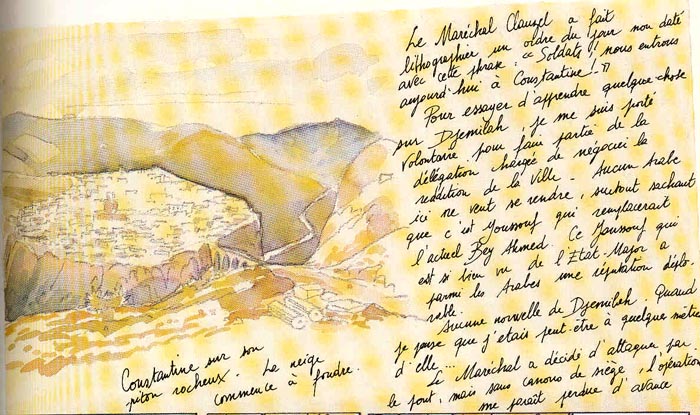 Le Maréchal Clauzel a fait
lithographier un ordre du jour non daté
avec cette phrase : "Soldats ! nous entrons
aujourd'hui à Constantine !"
Pour essayer d'apprendre quelque chose
sur Djemilah, je me suis porté
volontaire pour faire partie de la
délégation chargée de négocier la
reddition de la Ville. Aucun Arabe
ici ne veut se rendre, surtout sachant
que c'est Youssouf qui remplacerait
l'actuel Bey Ahmed. Ce Youssouf qui
est si bien vu de l'Etat-Major a
parmi les Arabes une réputation déplo-
rable.
Aucune nouvelle de Djemilah. Quand
je pense que j'étais peut-être à quelques mètres
d'elle...
Le Maréchal a décidé d'attaquer par
le pont, mais sans canons de siège, l'opération
me paraît perdue d'avance
Constantine sur son
piton rocheux. La neige
commence à fondre.